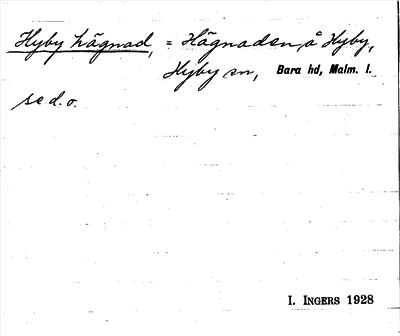 Hyby hägnad, = Hägnaden, å Hyby,
Hyby sn, Bara hd, Malm. l.
se d. o.
I. INGERS 1928